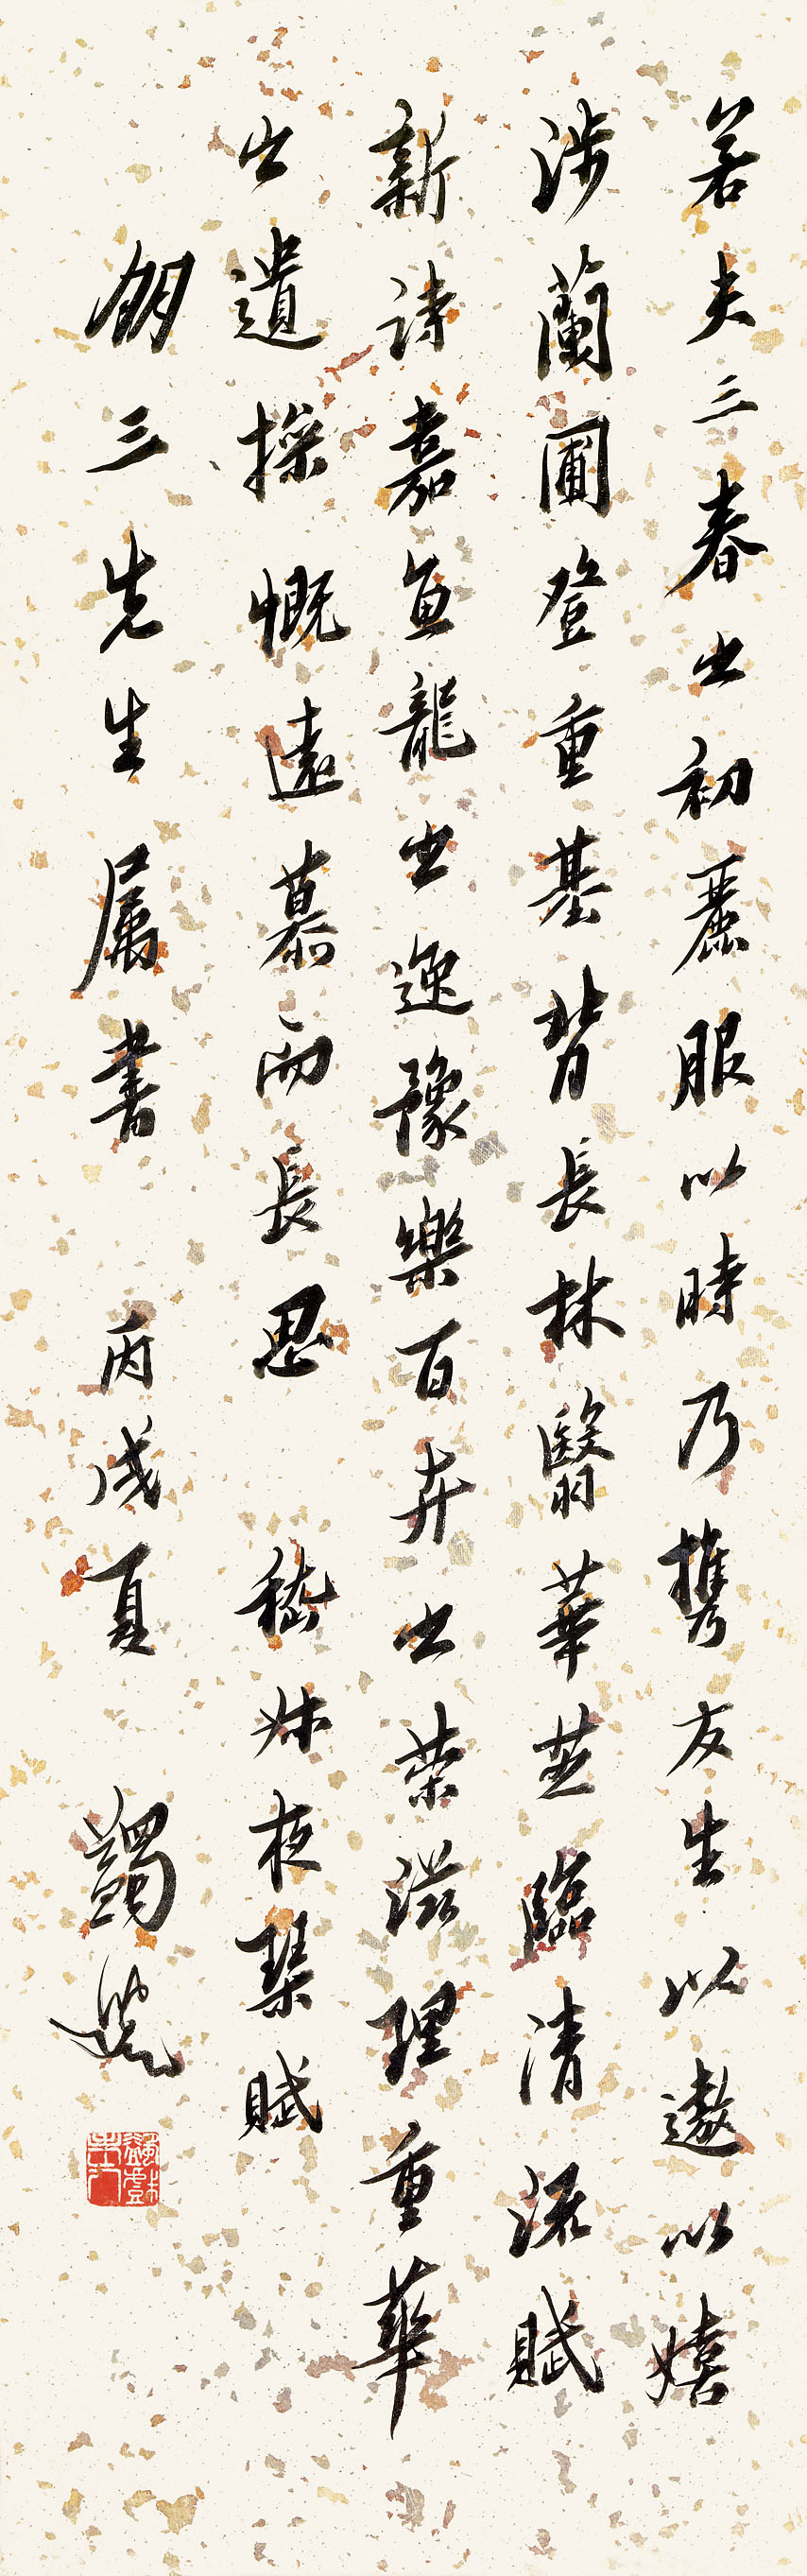 若夫三春之初麗服以時乃攜友生以遨以嬉
涉蘭圃登重基背長林翳華芝臨清流賦
新詩嘉魚龍之逸豫樂百卉之榮滋理重華
之遺操慨遠慕而長思 嵇叔夜琴賦
劬三先生屬書 丙戌夏 蠲叟